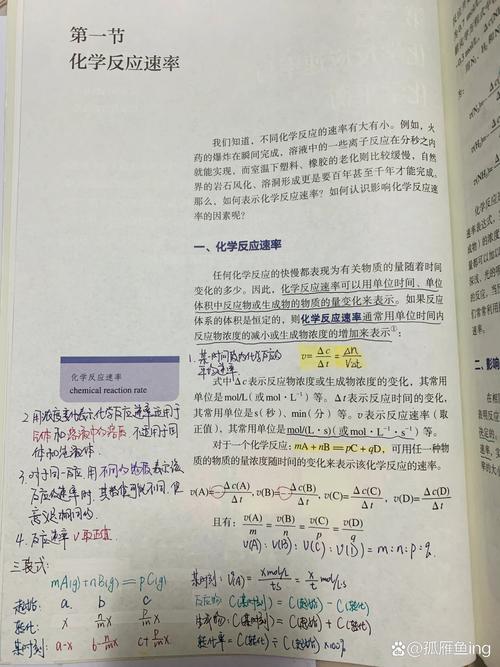 第一节
化学反应速率
我们知道，不同化学反应的速率有大有小。例如，火
药的爆炸在瞬间完成，溶液中的一些离子反应在分秒之内
就能实现，而室温下塑料、橡胶的老化则比较缓慢，自然
界的岩石风化、溶洞形成更是要百年甚至千年才能完成。
那么，如何表示化学反应速率？如何认识影响化学反应速
率的因素呢？
一、化学反应速率
任何化学反应的快慢都表现为有关物质的量随着时间
变化的多少。因此，化学反应速率可以用单位时间、单位
体积中反应物或生成物的物质的量变化来表示。如果反应
体系的体积是恒定的，则化学反应速率通常用单位时间内
反应物浓度的减小或生成物浓度的增加来表示①：
1. 某一时间段内化学反应的
平均速率
v = Δc/Δt = Δn/VΔt
化学反应速率
chemical reaction rate
式中Δc表示反应物浓度或生成物浓度的变化，其常用
单位是mol/L（或mol·L⁻¹）等。Δt表示反应时间的变化，
其常用单位是s（秒）、min（分）等。v表示反应速率（取
正值），其常用单位是mol/(L·s)（或mol·L⁻¹·s⁻¹）等。
对于一个化学反应：mA+nB=pC+qD，可用任一种物
质的物质的量浓度随时间的变化来表示该化学反应的速率。
v(A)=-Δc(A)/Δt，v(B)=-Δc(B)/Δt，v(C)=Δc(C)/Δt，v(D)=Δc(D)/Δt
且有：v(A)/m=v(B)/n=v(C)/p=v(D)/q
v(A):v(B):v(C):v(D)=m:n:p:q.
2. 用浓度变化表示化学反应速率适用于
气体和溶液中的溶质 不适用于固
体和纯液体.
3. 对于同一反应.用不同的物质表示该
反应的速率时.其数值可能不同.但
意义是相同的.
4. 反应速率v取正值.
三段式:
mA(g)+nB(g)=pC(g)
起始: a b c
转化: x n/m x p/m x
某时刻: a-x b-n/m x c+p/m x
某时刻: v(A)=x mol/L/ts=x/t mol/L·s
反应物: C(某时刻)=C(起始)-C(转化)
生成物: C(某时刻)=C(起始)+C(转化)
转化率=C(转化)÷C(起始)×100%
@孤雁鱼ing